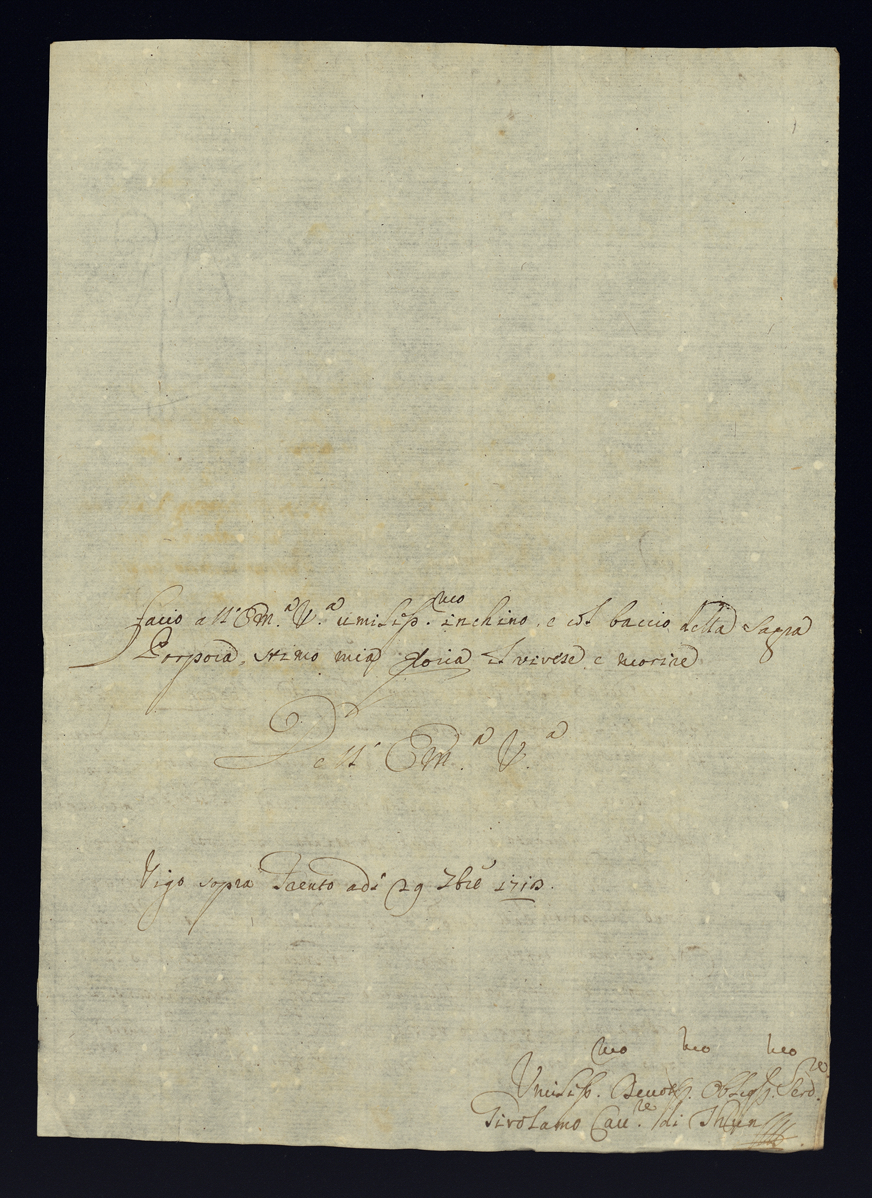 faccio all' Em.ª V.ª umiliss.mo inchino, e col baccio della Sagra
Porpora, stimo mia gloria il vivere, e morire
Dell' Em.ª V.ª
Vigo sopra Trento adi 29 7bre 1713.
Umiliss.mo Devotiss.mo Obligss.mo Serv.re
Girolamo Cau.re di Thun